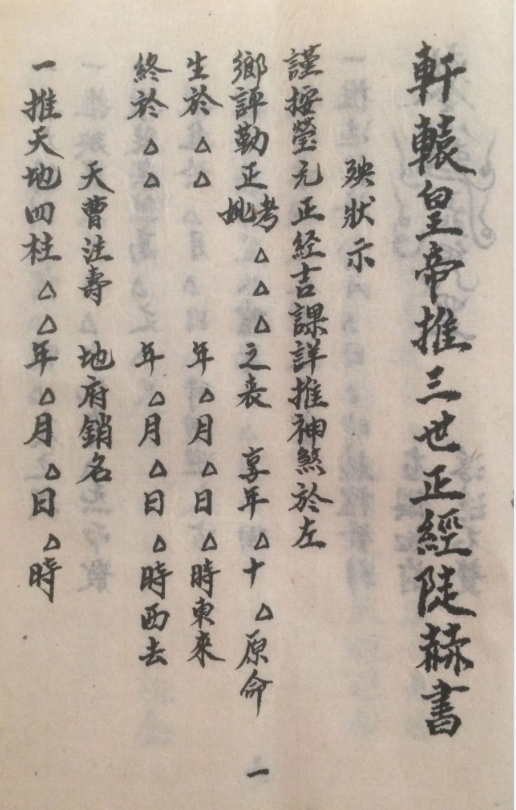 軒轅皇帝推三世正經陡赫書
殃狀示
謹按瑩元正經吉課詳推神煞於左
鄉評勤正考妣△△△之喪　享年△十△原命
生於△△　年△月△日△時東來
終於△△　年△月△日△時西去
天曹注壽　地府銷名
一推天地四柱△△年△月△日△時
一